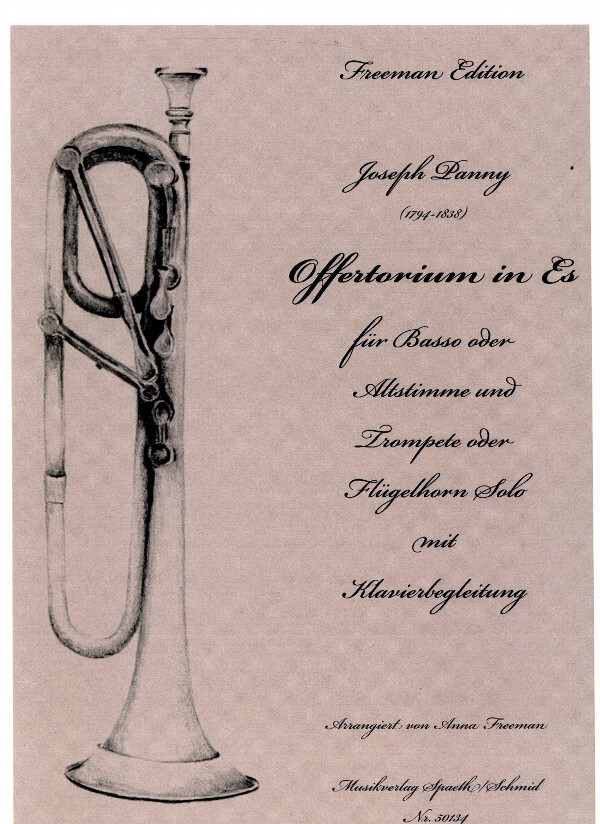 Freeman Edition
Joseph Panny
(1794-1838)
Offertorium in Es
für Basso oder
Altstimme und
Trompete oder
Flügelhorn Solo
mit
Klavierbegleitung
Arrangiert von Anna Freeman
Musikverlag Spaeth/Schmid
Nr. 50134